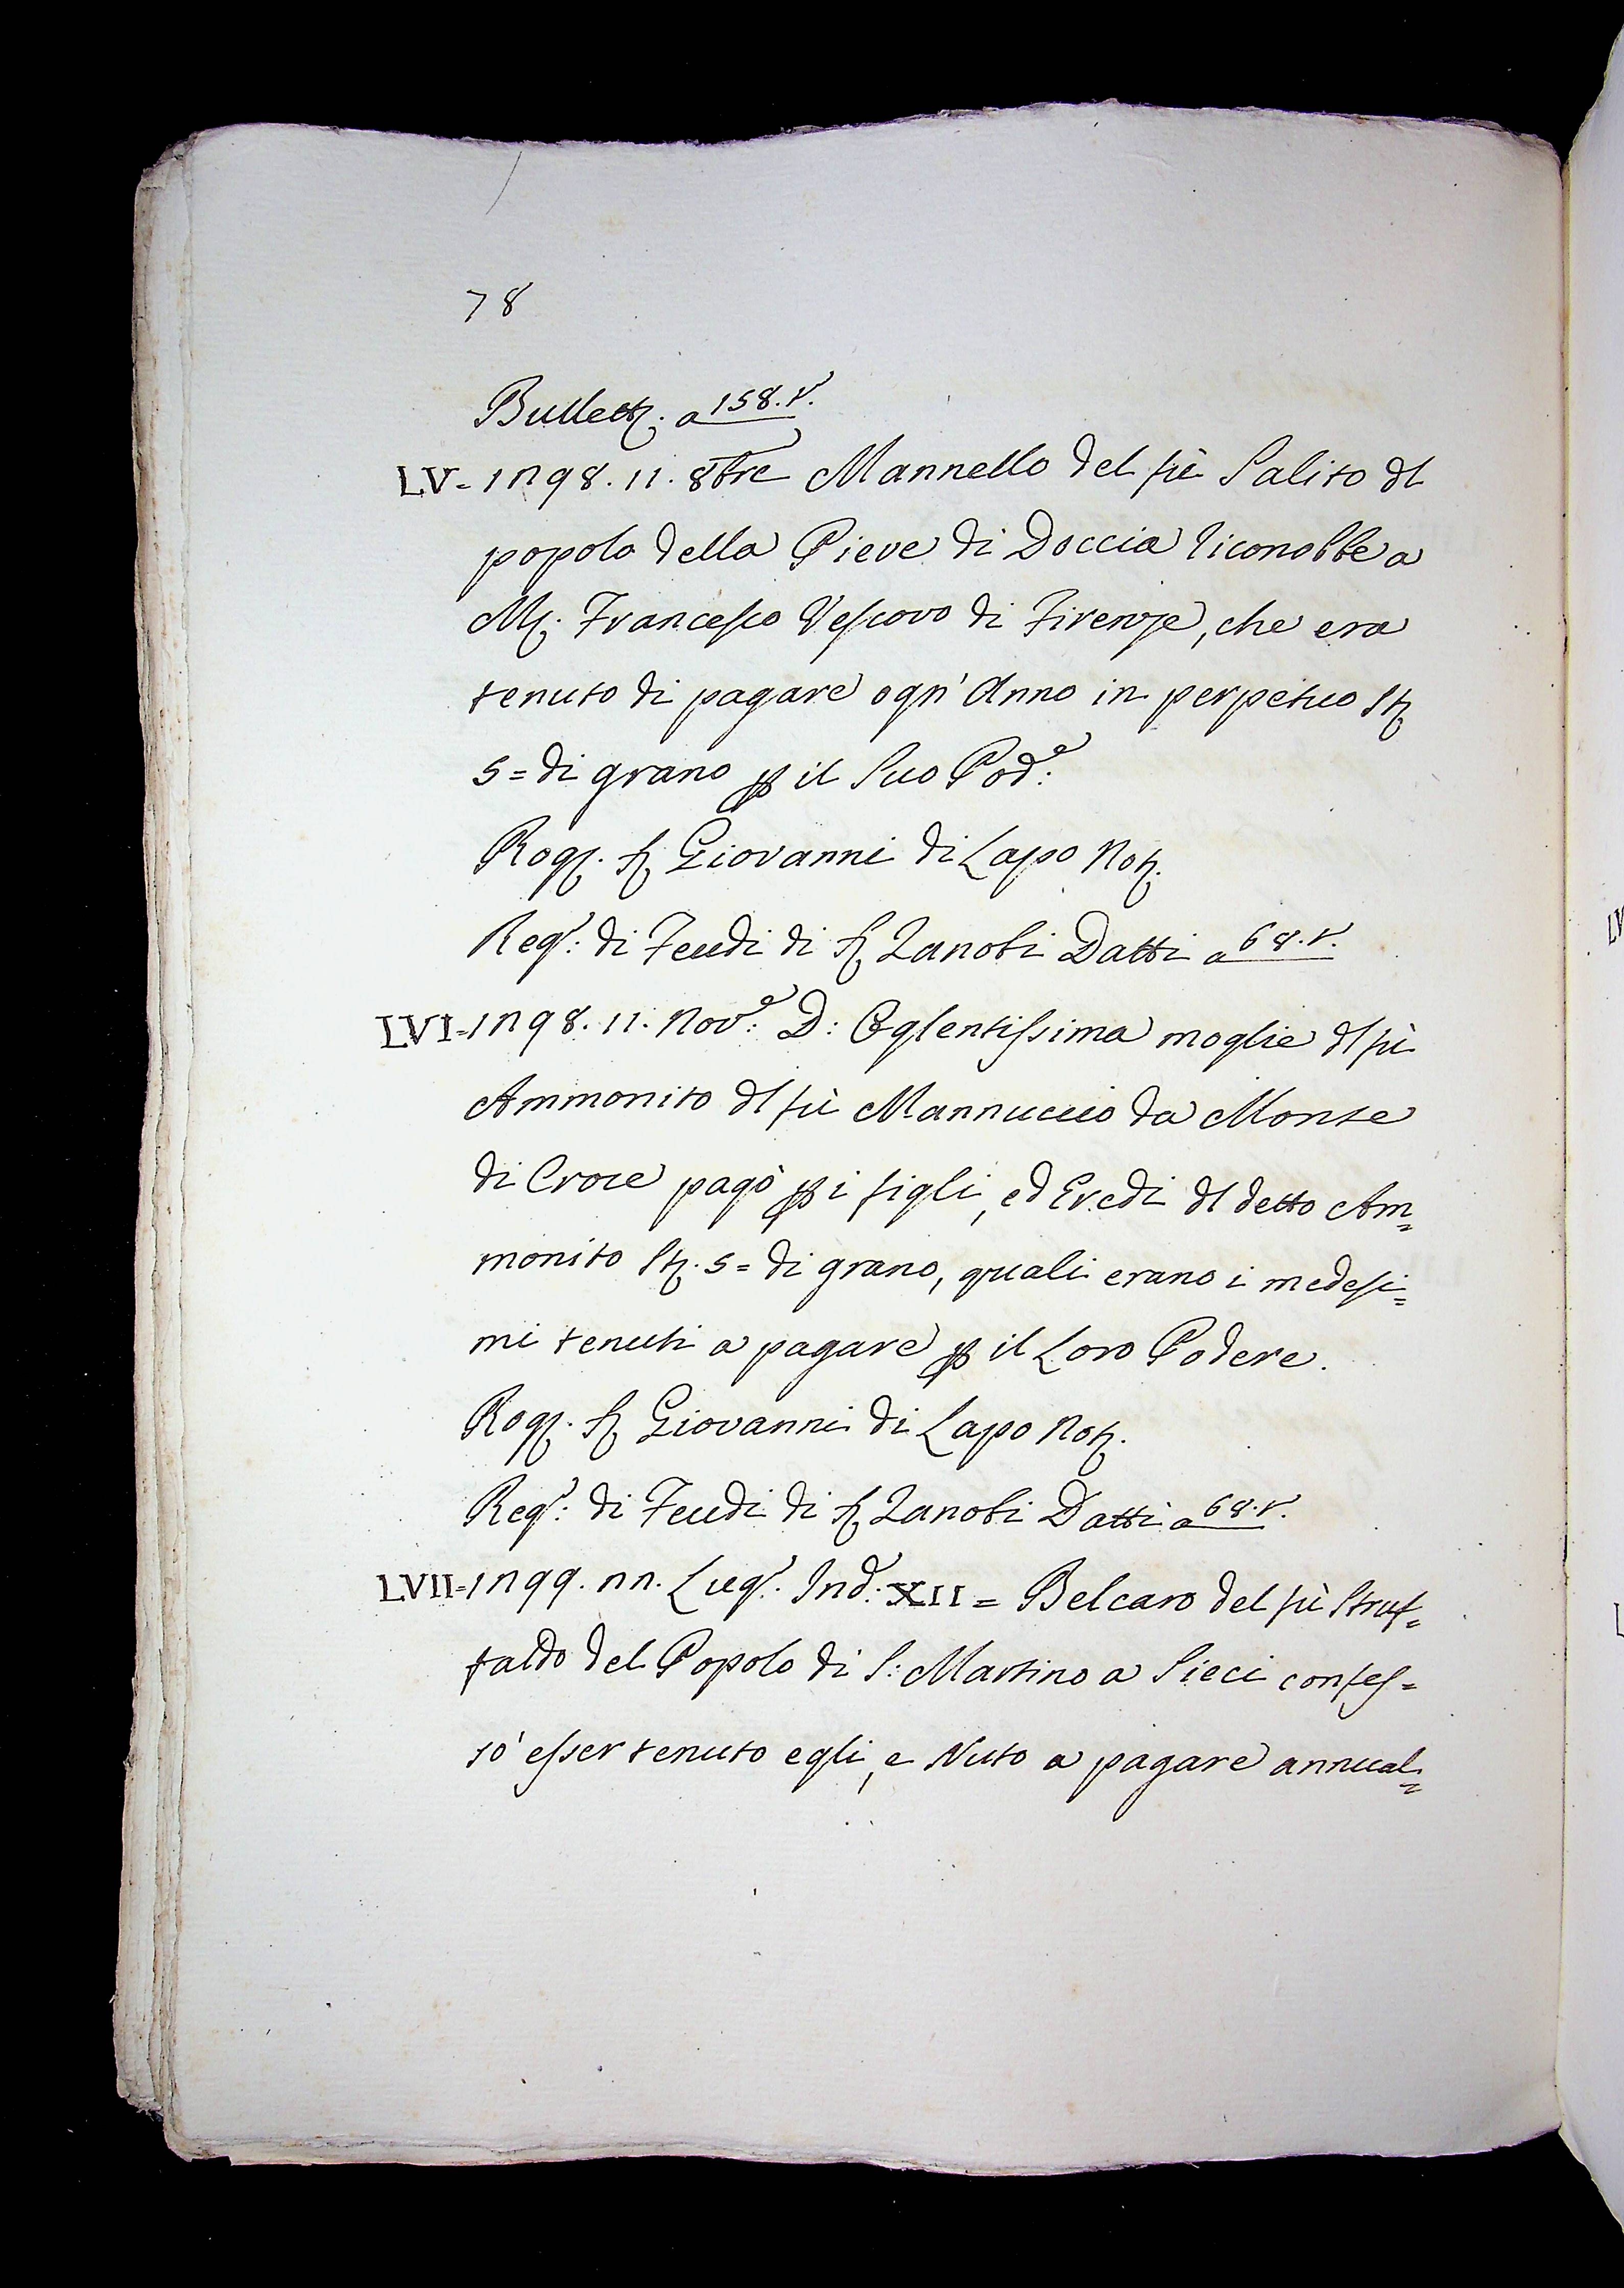 78
Bullett. a 158. v.
LV = 1298. 11. 8bre Mannello del fù Salito dl
popolo della Pieve di Doccia riconobbe a
M. Francesco Vescovo di Firenze, che era
tenuto di pagare ogn' Anno in perpetuo St
5 = di grano p il Suo Pod.e
Rog. S. Giovanni di Lapo Not.
Reg.: di Feudi di S. Zanobi Datti a 68. v.
LVI = 1298. 11. Nov.e D: Eglentissima moglie dl fù
Ammonito dl fù Mannuccio da Monte
di Croce pagò p i figli, ed Eredi dl detto Am=
monito St. 5 = di grano, quali erano i medesi=
mi tenuti a pagare p il Loro Podere.
Rog. S. Giovanni di Lapo Not.
Reg.: di Feudi di S. Zanobi Datti a 68. v.
LVII = 1299. 22. Lug. Ind. XII = Belcaro del fù Struf=
faldo del Popolo di S: Martino a Sieci confes=
sò esser tenuto egli, e Nuto a pagare annual=